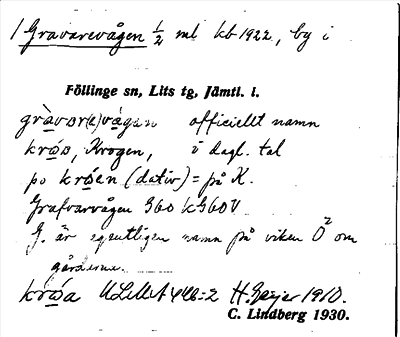 1 Gravarevågen 1/2 ml kb 1922, by i
Föllinge sn, Lits tg, Jämtl. l.
gràvar(e)vågen officiellt namn
króo, Krogen, i dagl. tal
po króen (dativ) = på K.
Grafvarvågen G60 k G60 V
G. är egentligen namn på viken Ö² om
gårdarna.
króa ULMA 446:2 H. Geijer 1910.
C. Lindberg 1930.